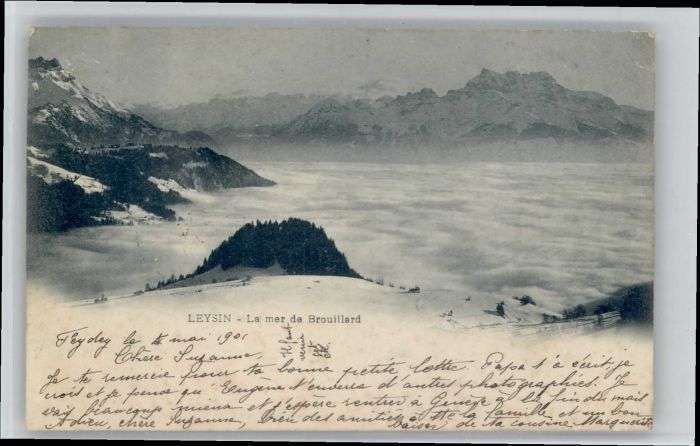 LEYSIN - La mer de Brouillard
Feydey le 4 mai 1901
Chère Suzanne,
Je te remercie pour ta bonne petite lettre. Papa t'a écrit, je
crois et je pense qu'Eugène t'enverra d'autres photographies. Je
vais beaucoup mieux et j'espère rentrer à Genève à la fin du mois
Adieu, chère Suzanne, bien des amitiés à tte la famille et un bon
baiser de ta cousine Marguerite